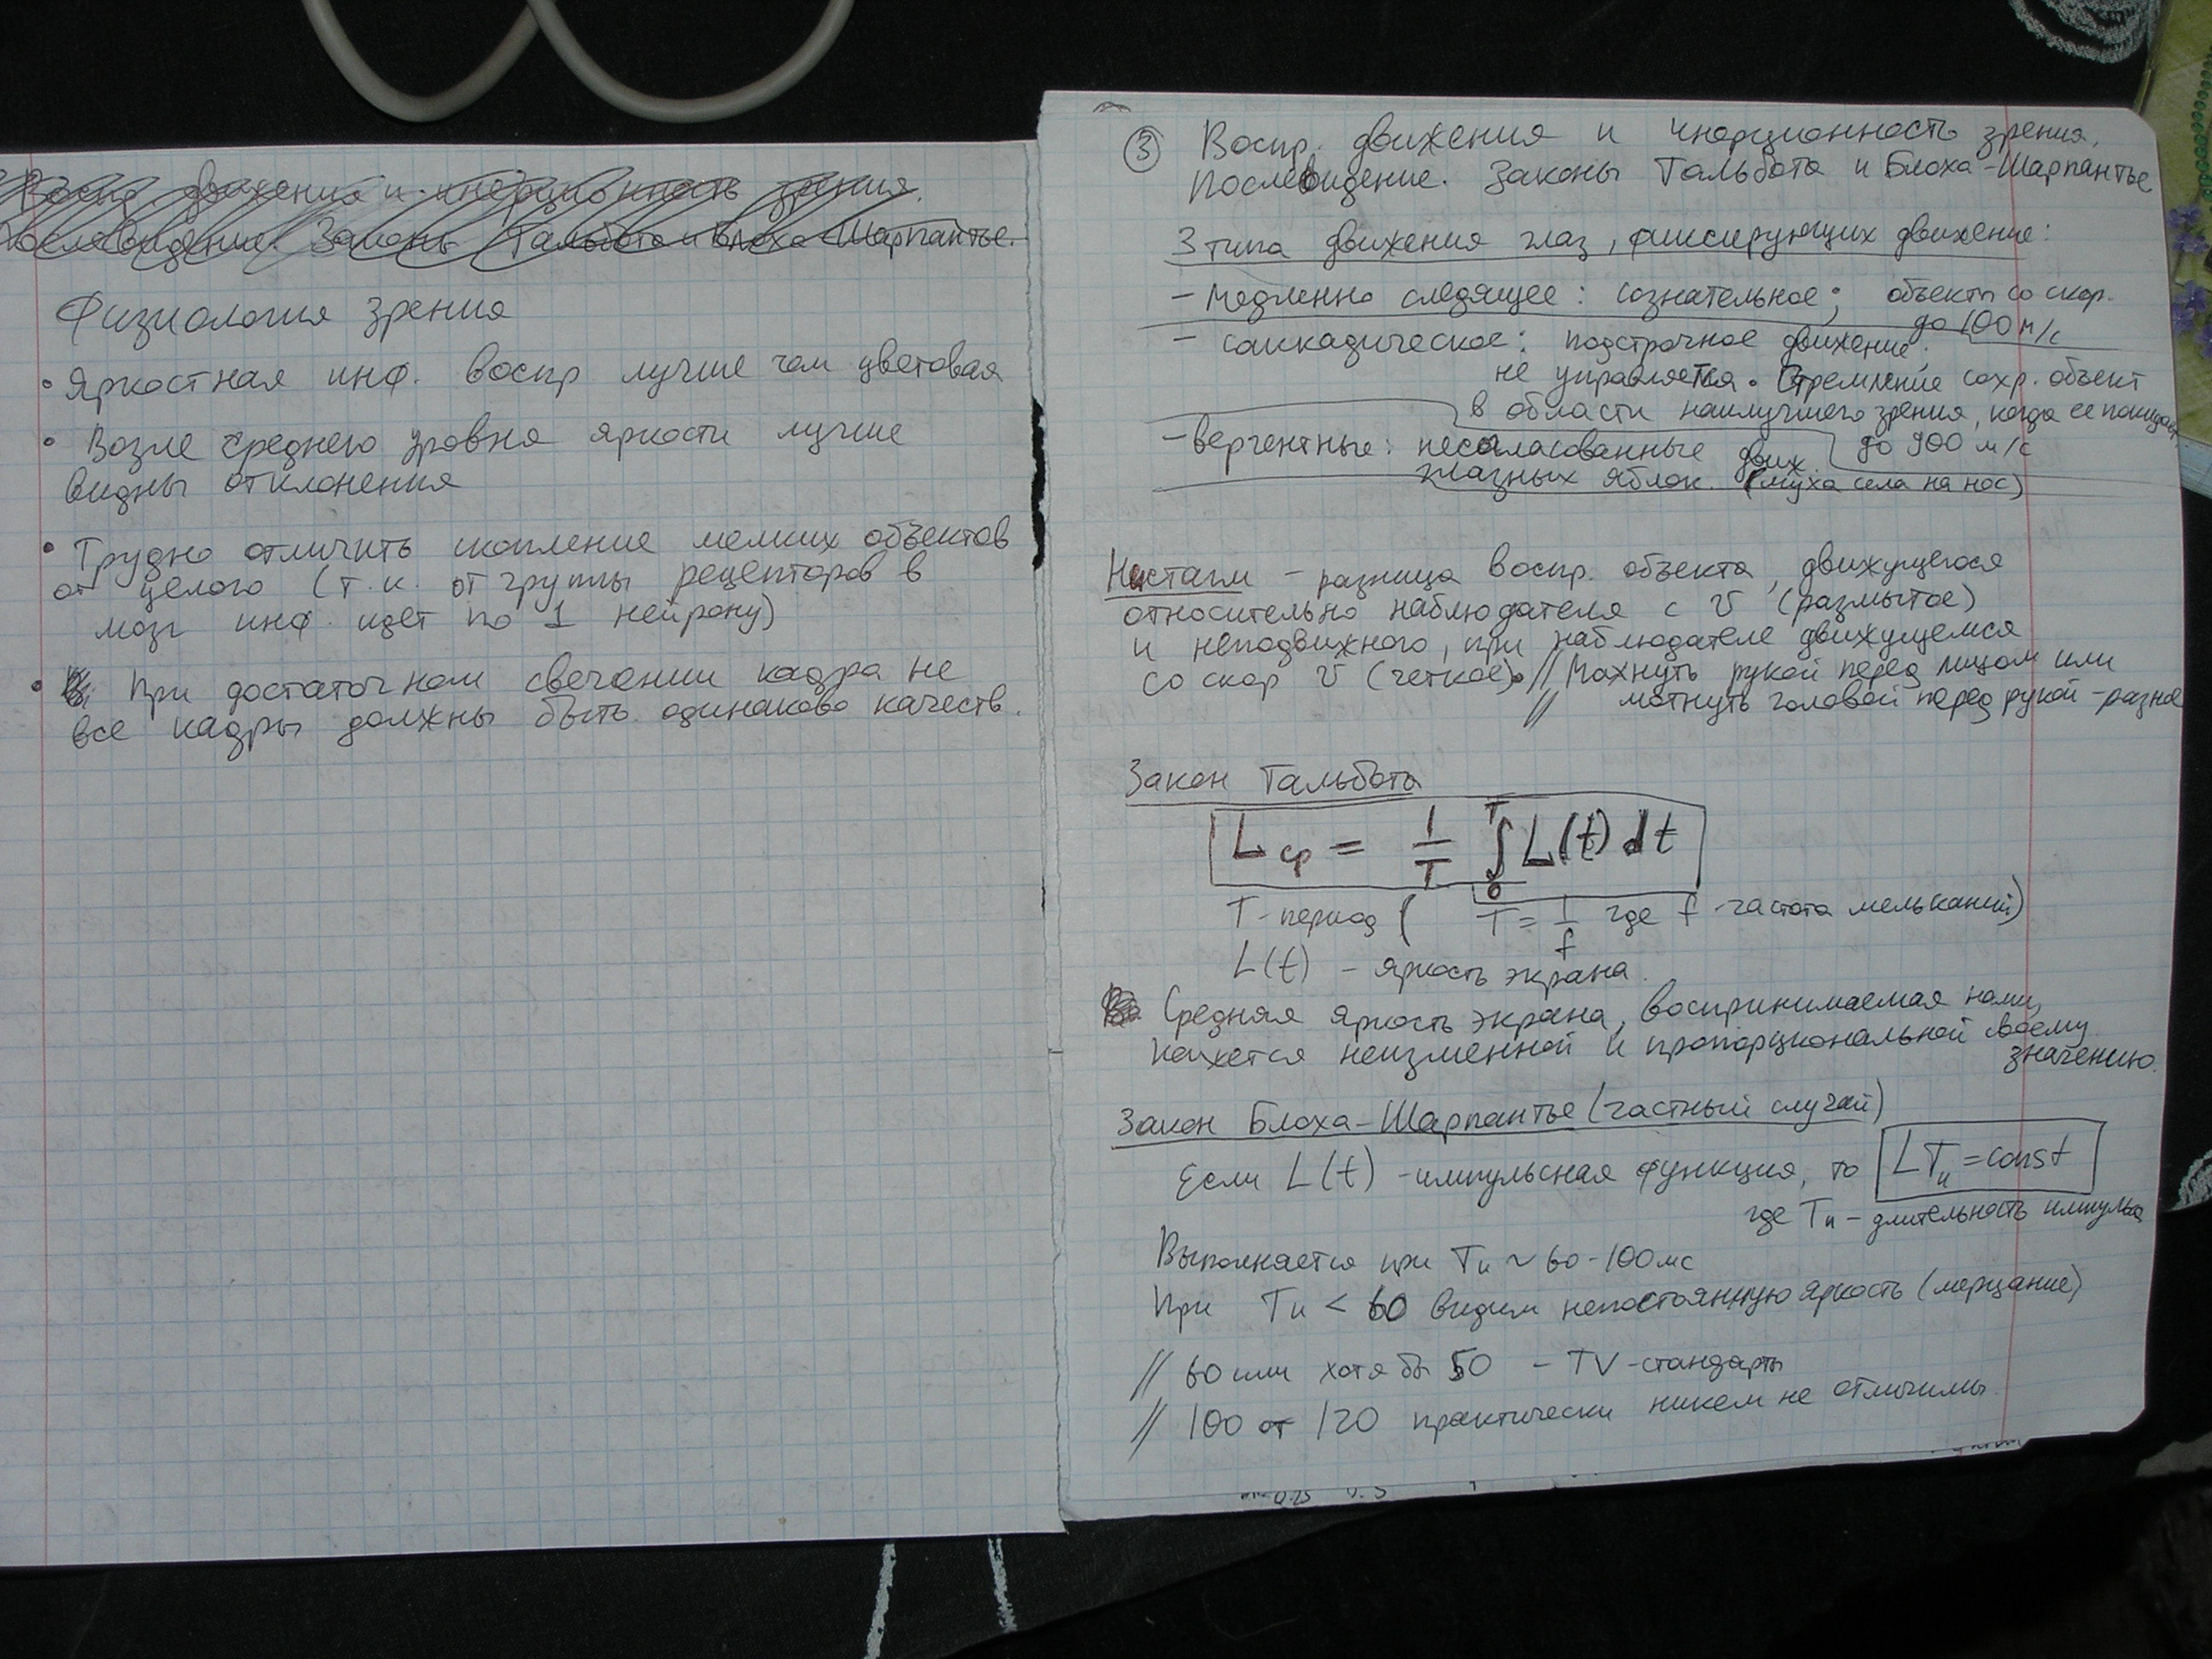 Воспр. движения и инерционность зрения.
Послевидение. Законы Тальбота и Блоха-Шарпантье.
Физиология зрения
• Яркостная инф. воспр лучше чем цветовая
• Возле среднего уровня яркости лучше
видны отклонения
• Трудно отличить скопление мелких объектов
от целого (т.к. от группы рецепторов в
мозг инф. идет по 1 нейрону)
• При достаточном свечении кадра не
все кадры должны быть одинаково качеств.
③ Воспр. движения и инерционность зрения.
Послевидение. Законы Тальбота и Блоха-Шарпантье
3 типа движения глаз, фиксирующих движение:
- медленно следящее: сознательное; объекты со скор.
до 100 м/с
- саккадическое: подстрочное движение.
не управляется. Стремление сохр. объект
в области наилучшего зрения, когда ее покидает
до 900 м/с
- вергентные: несогласованные движ.
глазных яблок. (муха села на нос)
Нистагм - разница воспр. объекта, движущегося
относительно наблюдателя с v (размытое)
и неподвижного, при наблюдателе движущемся
со скор v (четкое). // Махнуть рукой перед лицом или
// мотнуть головой перед рукой - разное
Закон Тальбота
L ср = 1/T ∫₀ᵀ L(t) dt
T - период ( T = 1/f где f - частота мельканий)
L(t) - яркость экрана.
Средняя яркость экрана, воспринимаемая нами,
кажется неизменной и пропорциональной своему
значению.
Закон Блоха-Шарпантье (частный случай)
Если L(t) - импульсная функция, то LTи = const
где Tи - длительность импульса
Выполняется при Tи ~ 60-100мс
При Tи < 60 видим непостоянную яркость (мерцание)
// 60 или хотя бы 50 - TV-стандарты
// 100 от 120 практически никем не отличимы.